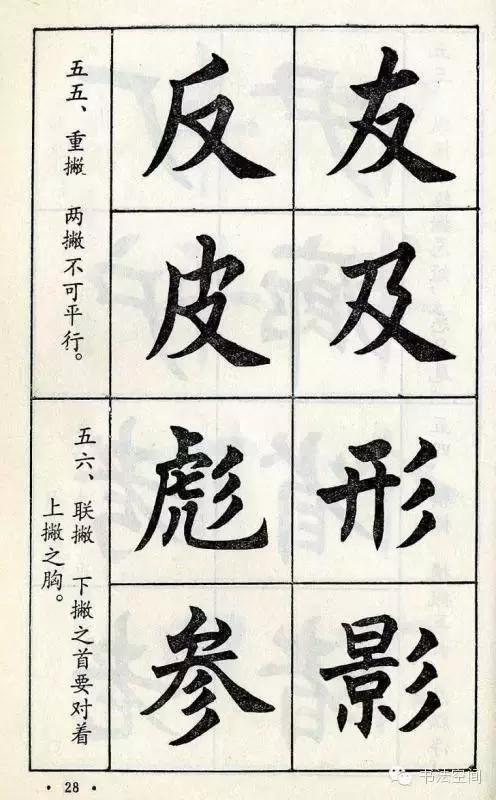 友
及
形
影
反
皮
彪
参
五五、重撇 两撇不可平行。
五六、联撇 下撇之首要对着
上撇之胸。
· 28 ·
书法空间